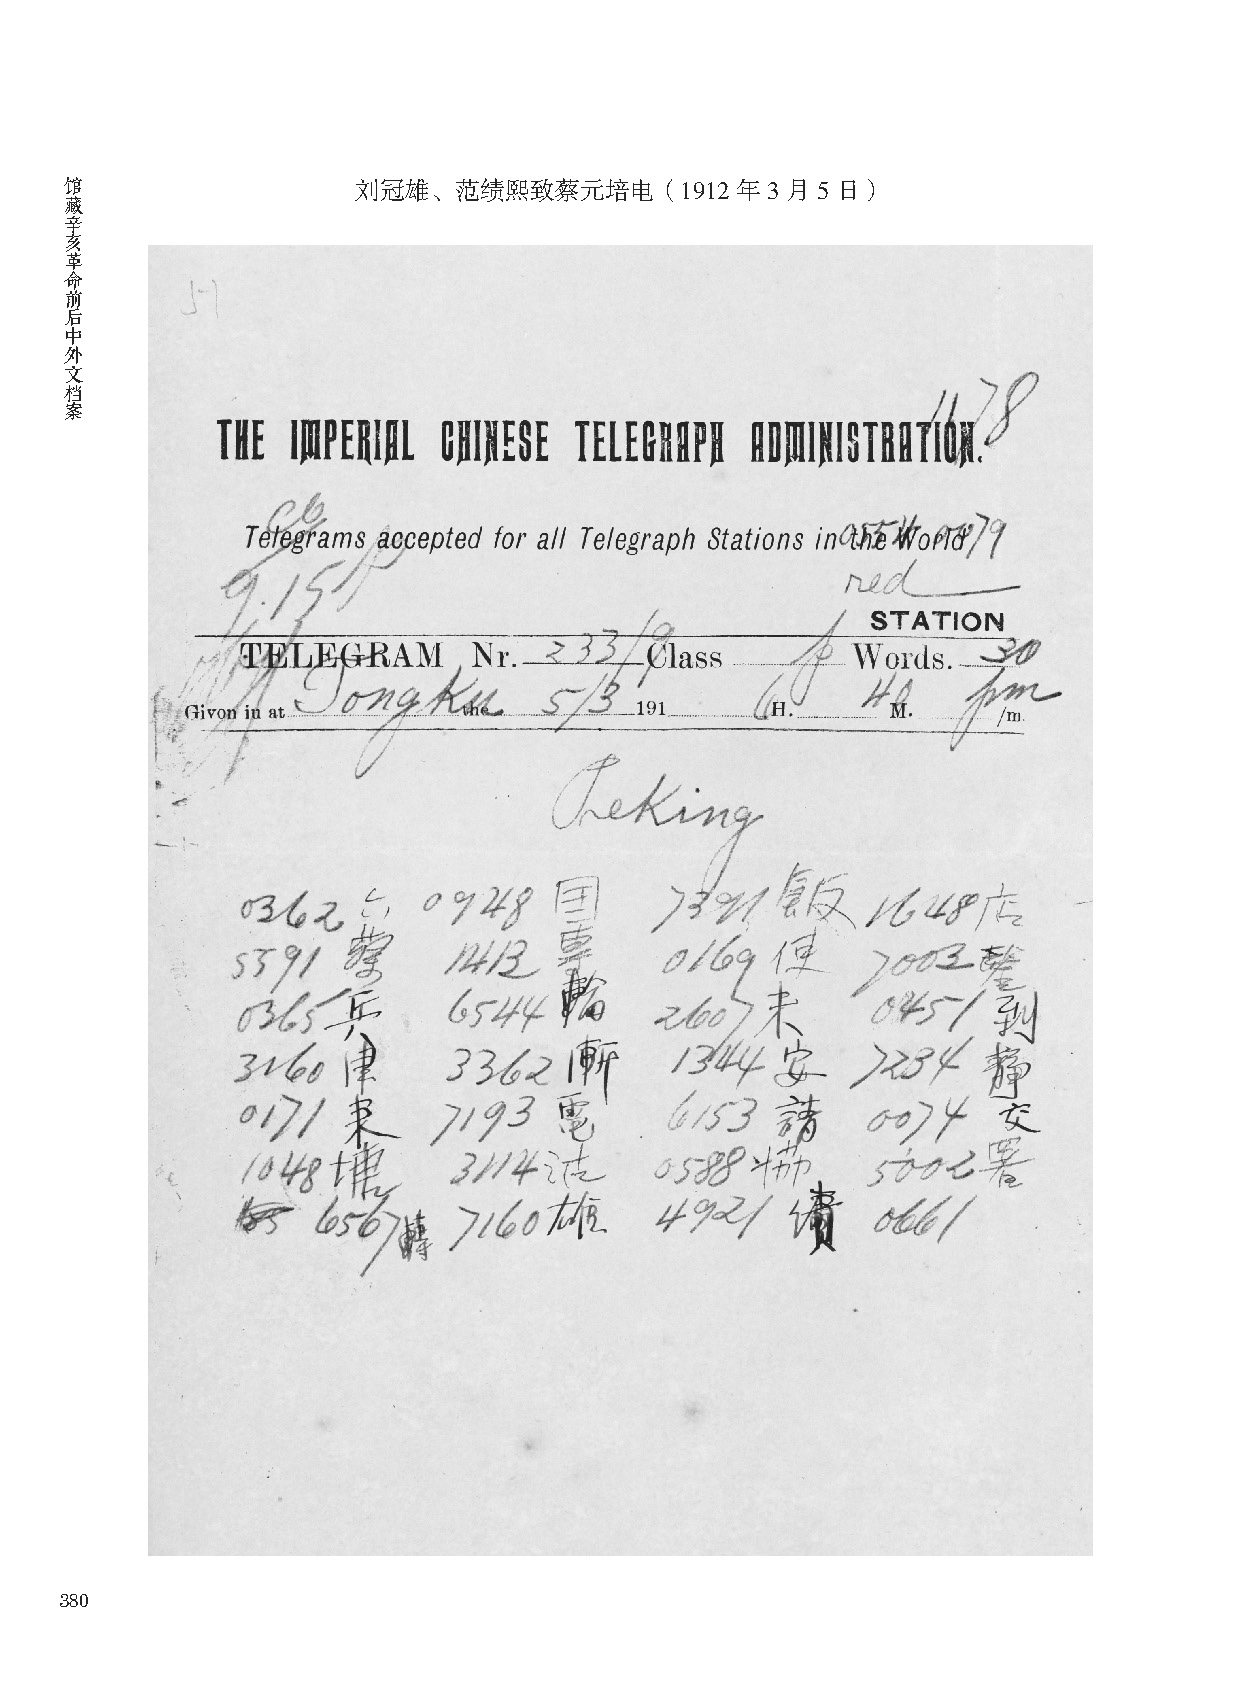 馆藏辛亥革命前后中外文档案
刘冠雄、范绩熙致蔡元培电（1912年3月5日）
1178
THE IMPERIAL CHINESE TELEGRAPH ADMINISTRATION.
Telegrams accepted for all Telegraph Stations in the World
9.15 p
red
STATION
TELEGRAM Nr. 233/9 Class p Words. 30
Givon in at Tongku the 5/3 191 6 H. 40 M. pm /m.
Peking
0362 六 0948 国 7391 飯 1648 店
5591 蔡 1413 專 0169 使 7003 鑒
0365 兵 6544 輪 2607 未 0451 到
3160 津 3362 漸 1344 安 7234 靜
0171 来 7193 電 6153 請 0074 交
1048 塘 3114 沽 0588 恊 5002 署
6567 轉 7160 雄 4921 績 0661
380